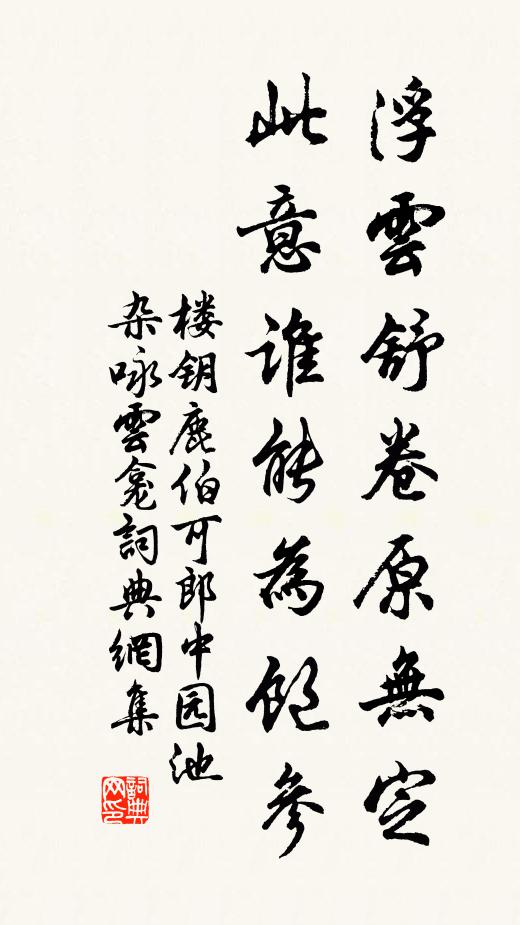 浮雲舒卷原無定
此意谁能為飽參
楼钥鹿伯可郎中园池
杂咏雲龛詞典網集
詞典
网印